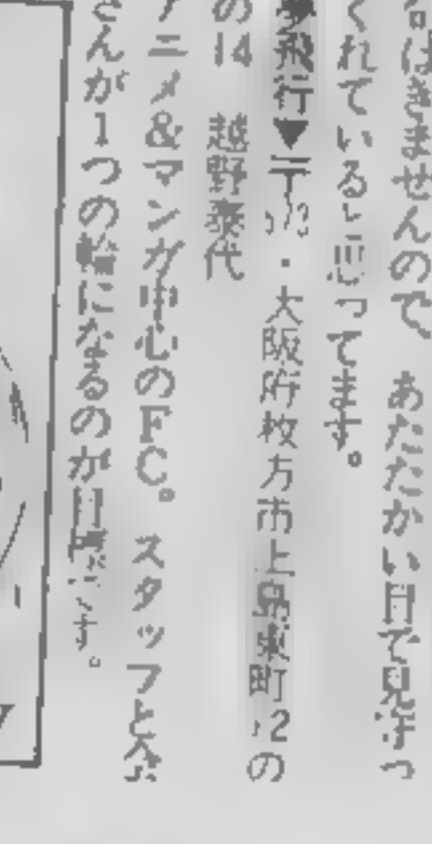 はきませんので、あたたかい目で見守っ
くれていると思ってます。
夢飛行▼〒・大阪府枚方市上島東町2の
の14 越野泰代
アニメ&マンガ中心のFC。スタッフと会
さんが1つの輪になるのが目標です。